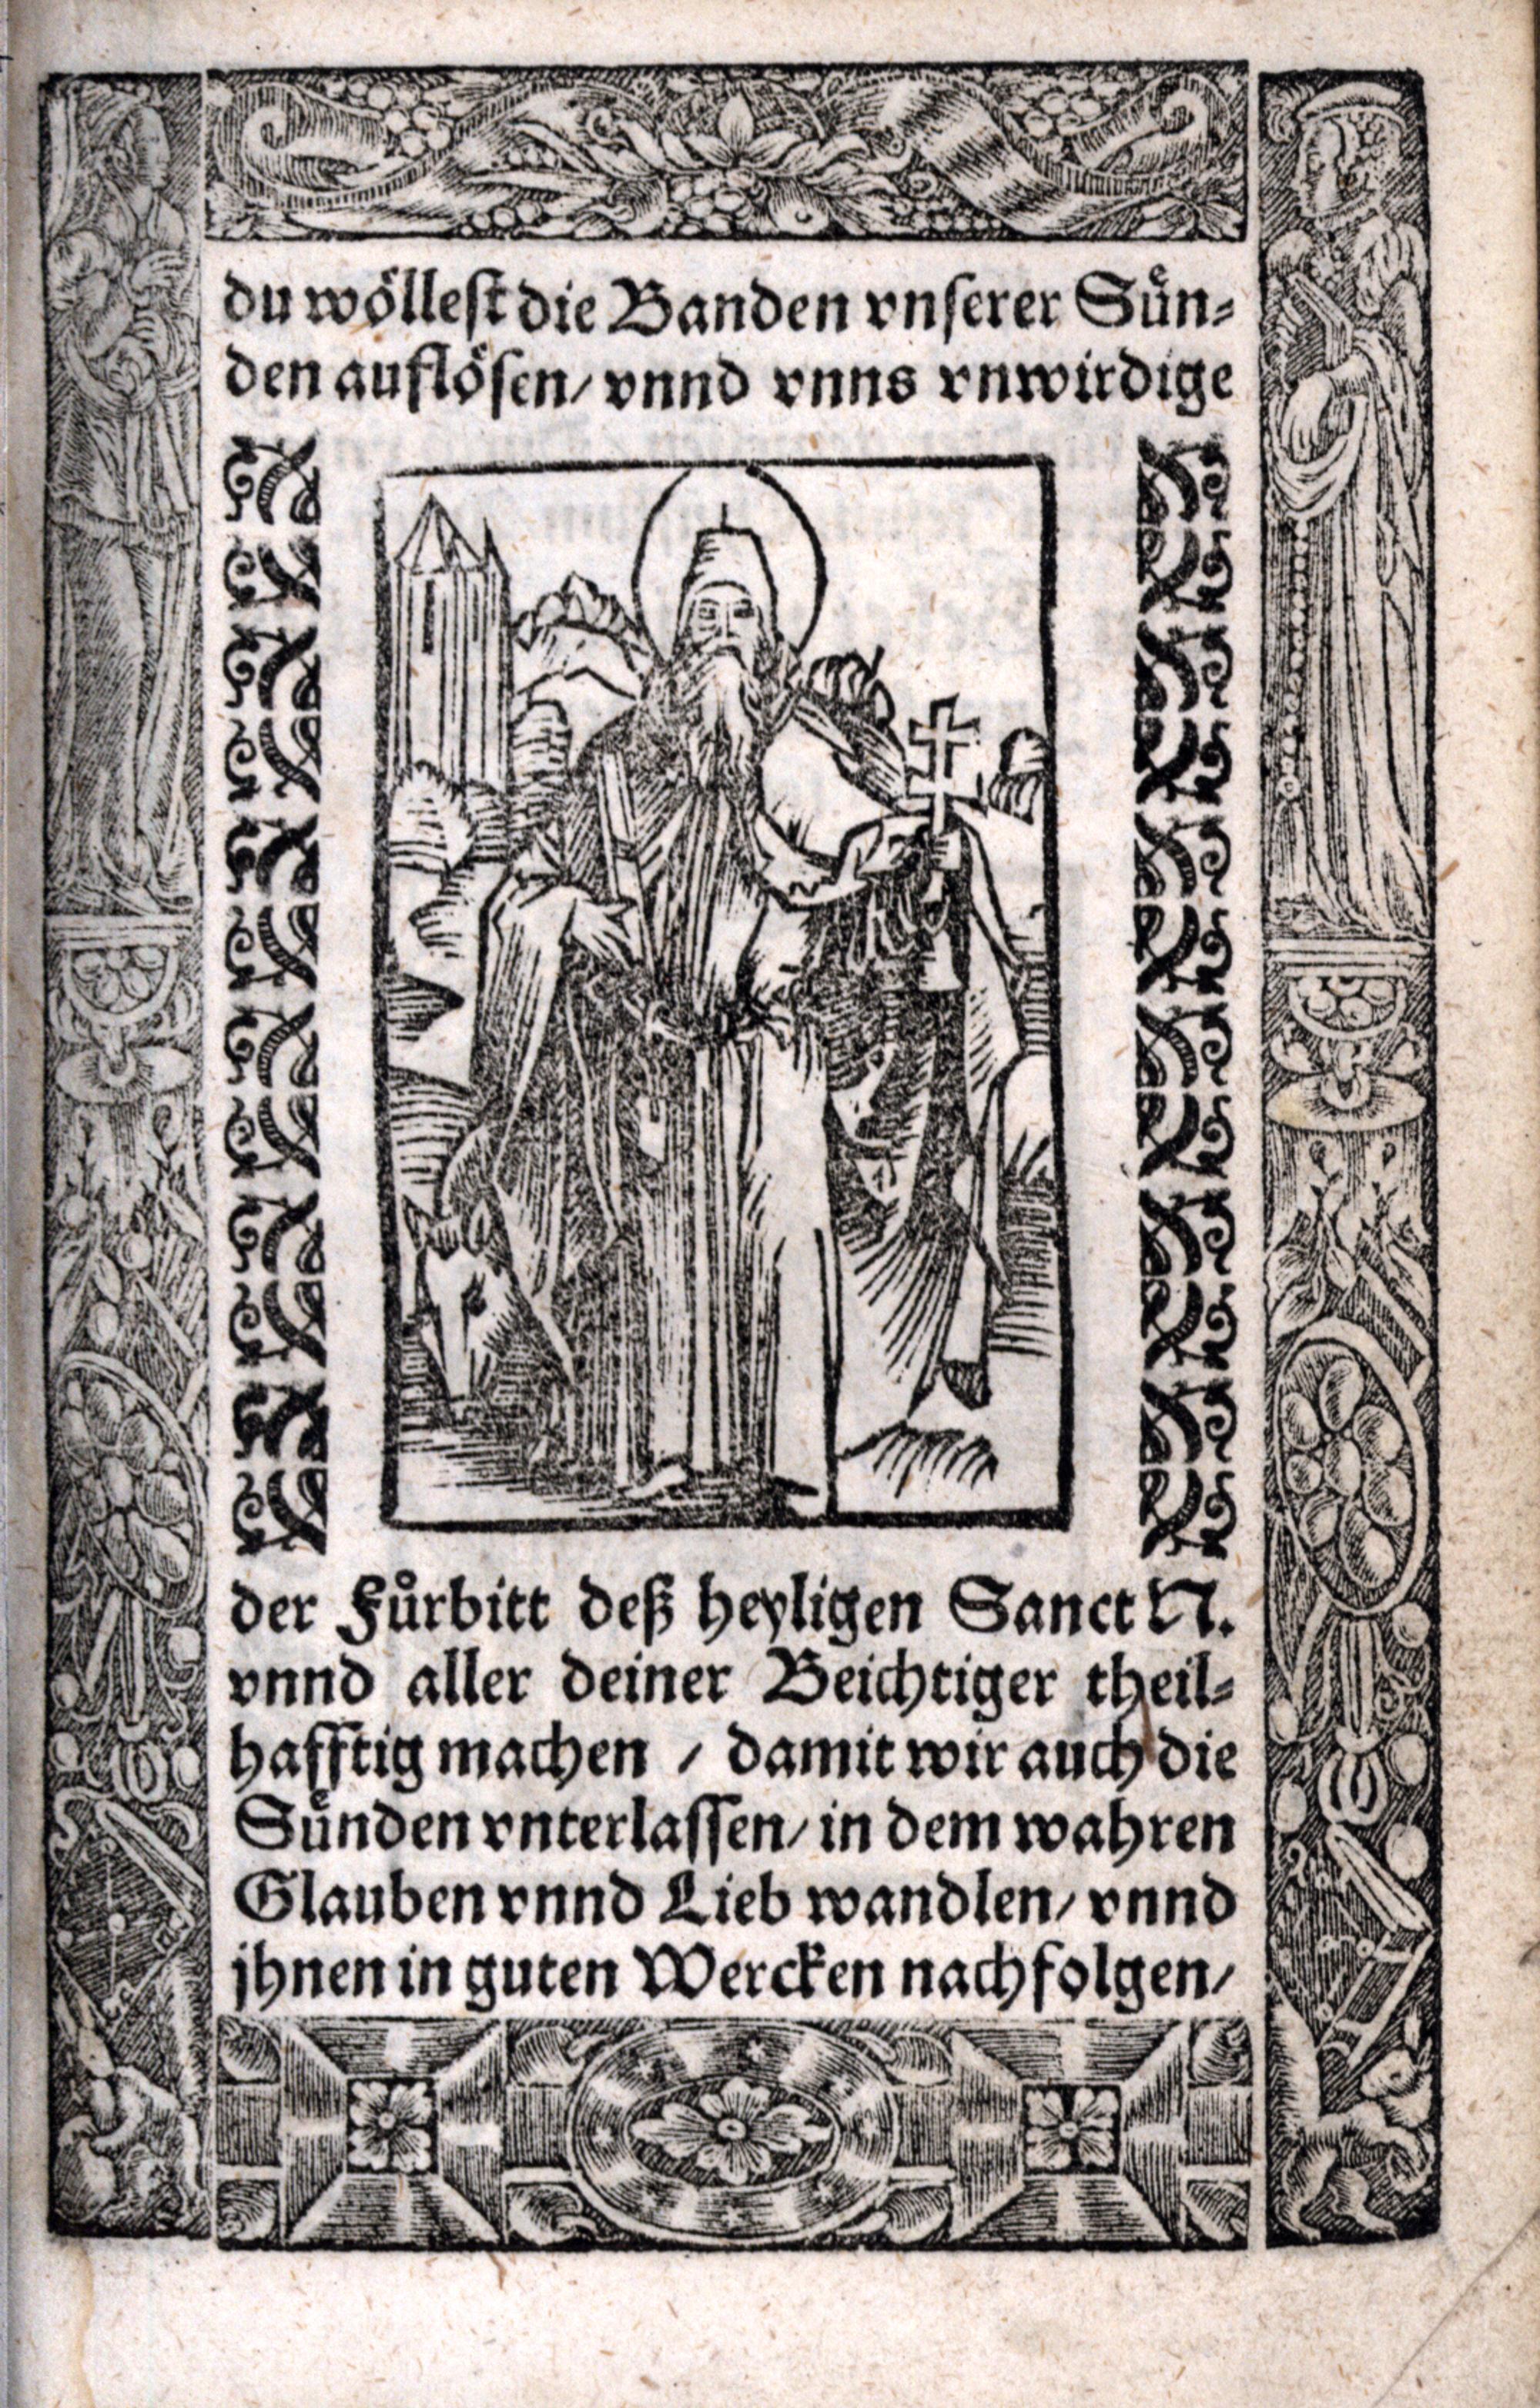 du wöllest die Banden vnserer Sün⸗
den auflösen/ vnnd vnns vnwirdige
der Fůrbitt deß heyligen Sanct N.
vnnd aller deiner Beichtiger theil⸗
hafftig machen / damit wir auch die
Sünden vnterlassen/ in dem wahren
Glauben vnnd Lieb wandlen/ vnnd
jhnen in guten Wercken nachfolgen/